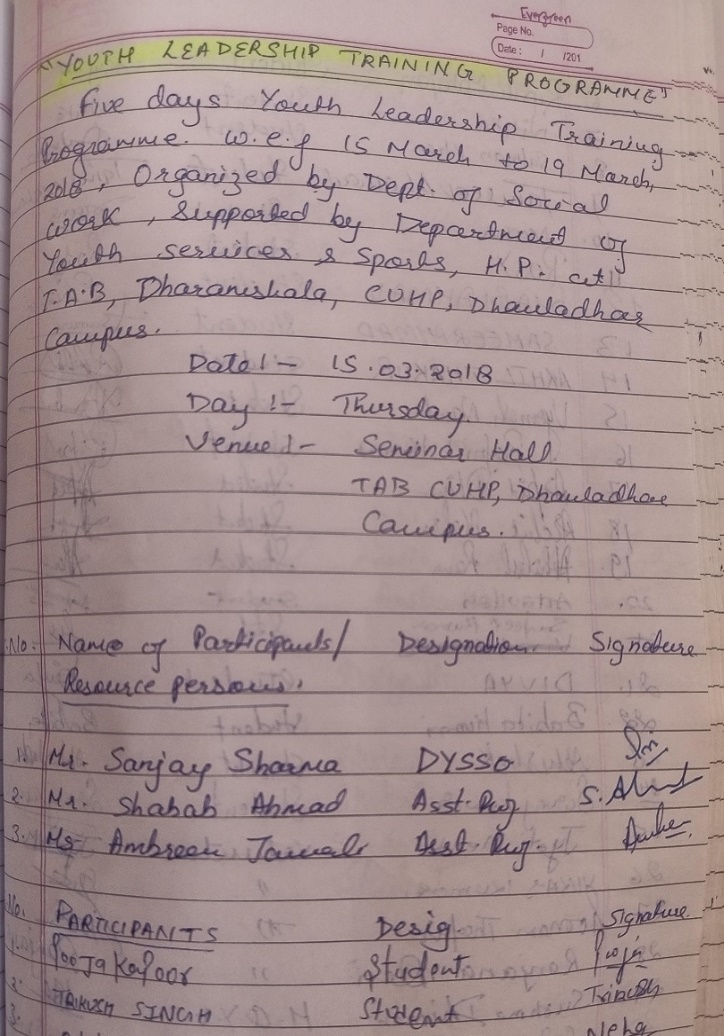 Evergreen
Page No.
Date: / /201
"YOUTH LEADERSHIP TRAINING PROGRAMME"
Five days Youth Leadership Training
Programme. w.e.f 15 March to 19 March,
2018, Organized by Dept. of Social
work, Supported by Department of
Youth services & Sports, H.P. at
T.A.B, Dharamshala, CUHP, Dhauladhar
Campus.
Date:- 15.03.2018
Day:- Thursday.
Venue:- Seminar Hall
TAB CUHP, Dhauladhar
Campus.
No. Name of Participants/ Designation Signature
Resource persons.
1. Mr. Sanjay Sharma DYSSO
2. Mr. Shabab Ahmad Asst. Prof S. Ahmad
3. Ms Ambreen Jamali Asst. Prof.
No. PARTICIPANTS Desig Signature
1. Pooja Kapoor Student Pooja
2. SINGH Student
3. Neha